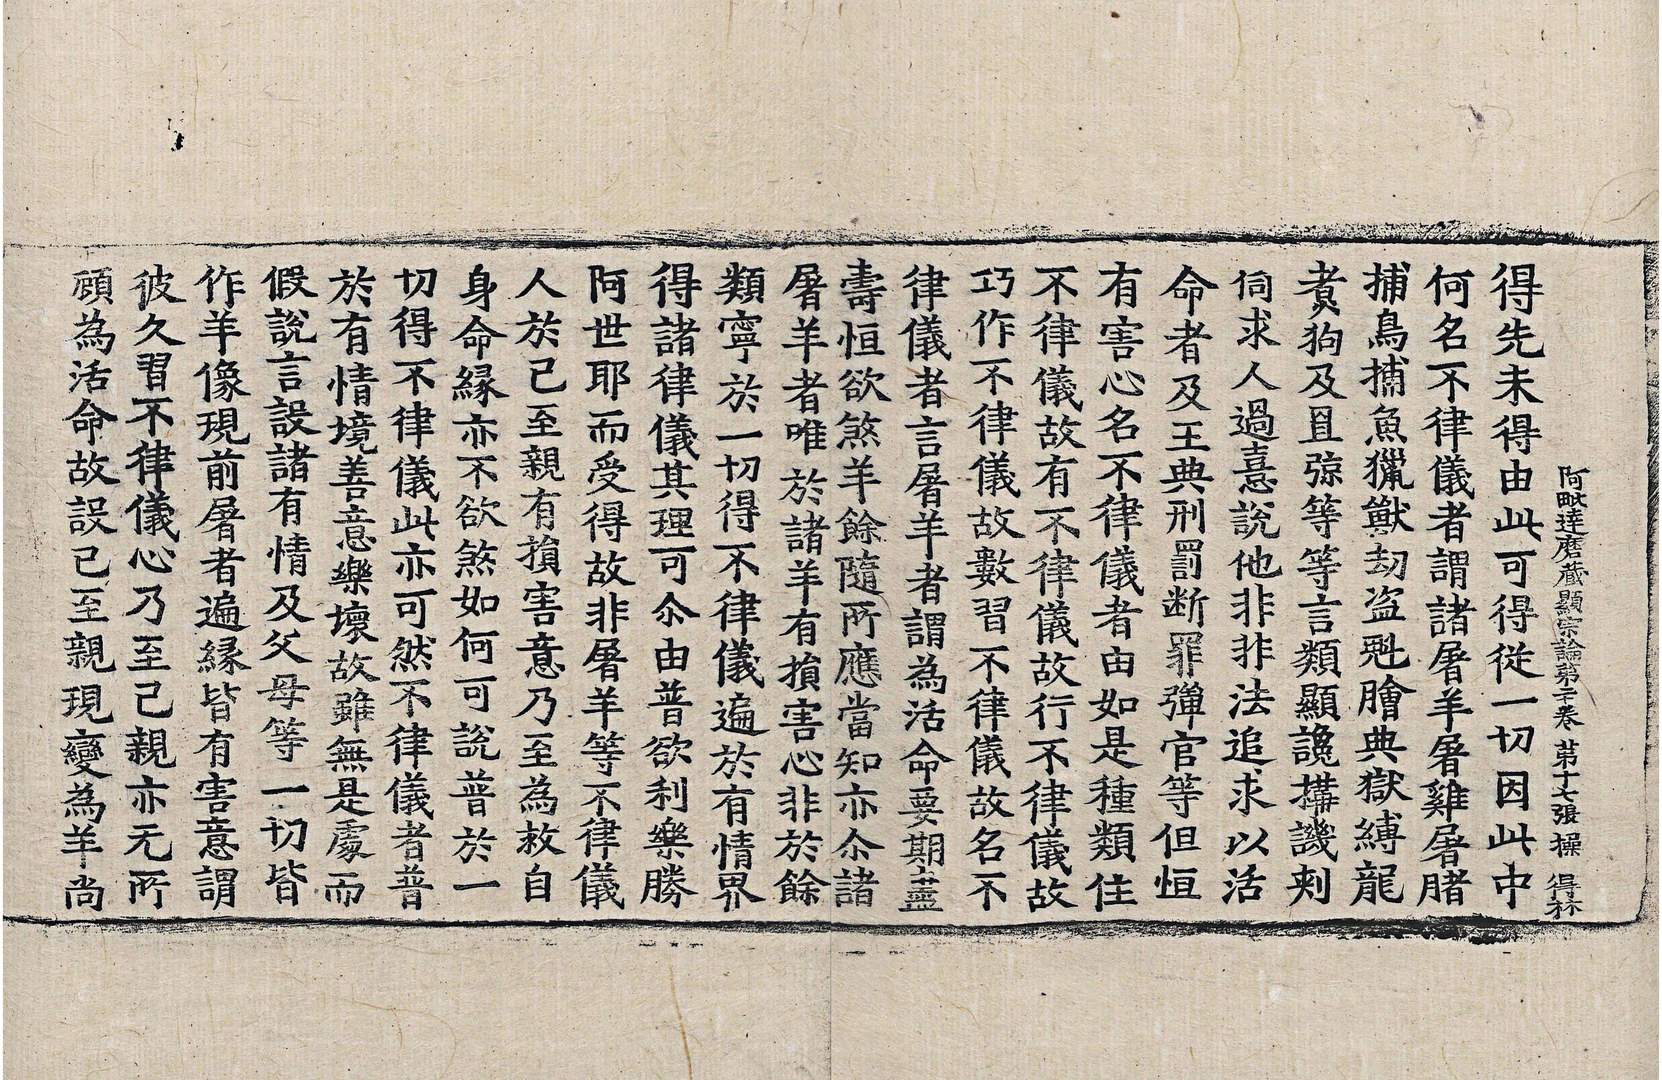 阿毗達磨藏顯宗論第二十卷 第十七張 操 得林
得先未得由此可得從一切因此中
何名不律儀者謂諸屠羊屠雞屠猪
捕鳥捕魚獵獸劫盗魁膾典獄縛龍
煑狗及罝弶等等言類顯讒搆譏刾
伺求人過憙說他非非法追求以活
命者及王典刑罰断罪彈官等但恒
有害心名不律儀者由如是種類住
不律儀故有不律儀故行不律儀故
巧作不律儀故數習不律儀故名不
律儀者言屠羊者謂為活命要期盡
壽恒欲煞羊餘隨所應當知亦尒諸
屠羊者唯於諸羊有損害心非於餘
類寧於一切得不律儀遍於有情界
得諸律儀其理可尒由普欲利樂勝
阿世耶而受得故非屠羊等不律儀
人於己至親有損害意乃至為救自
身命緣亦不欲煞如何可說普於一
切得不律儀此亦可然不律儀者普
於有情境善意樂壞故雖無是處而
假說言設諸有情及父母等一切皆
作羊像現前屠者遍緣皆有害意謂
彼久習不律儀心乃至己親亦无所
頋為活命故設己至親現變為羊尚